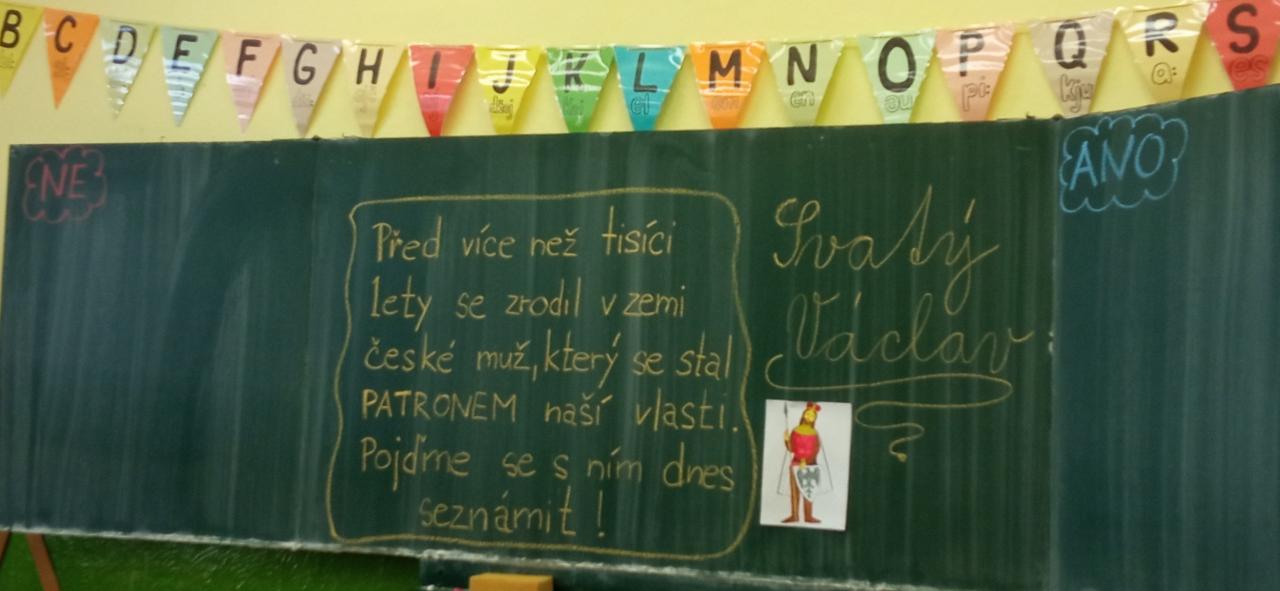 B C D E F G H I J K L M N O P Q R S
džej kej el em en ou pí: kjú a: es
NE
ANO
Před více než tisíci
lety se zrodil v zemi
české muž, který se stal
PATRONEM naší vlasti.
Pojďme se s ním dnes
seznámit!
Svatý
Václav